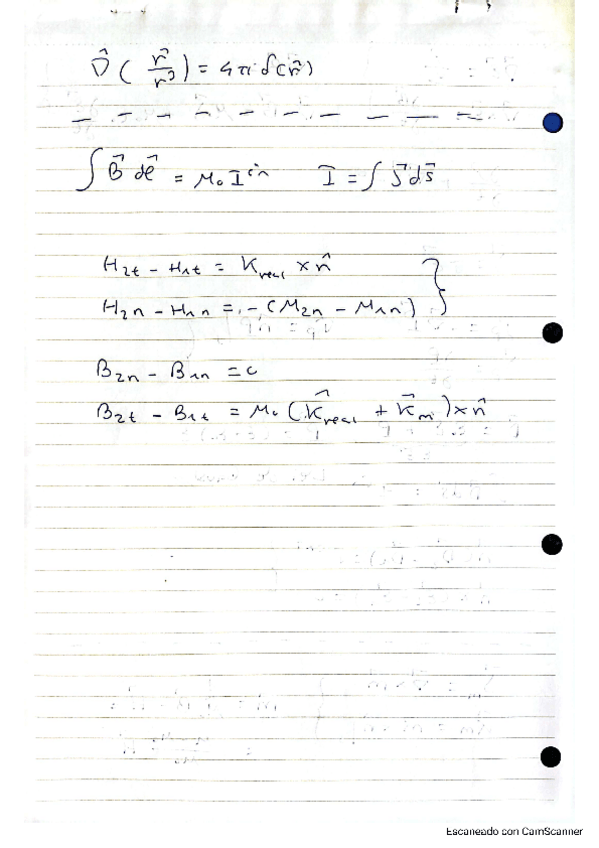 ∇⃗ ( r⃗ / r³ ) = 4π δ(r⃗)
∫ B⃗ dℓ⃗ = μ₀ I^in I = ∫ J⃗ ds⃗
H₂t - H₁t = K_real × n̂
H₂n - H₁n = - (M₂n - M₁n) }
B₂n - B₁n = 0
B₂t - B₁t = μ₀ (K⃗_real + K⃗_m) × n̂
Escaneado con CamScanner